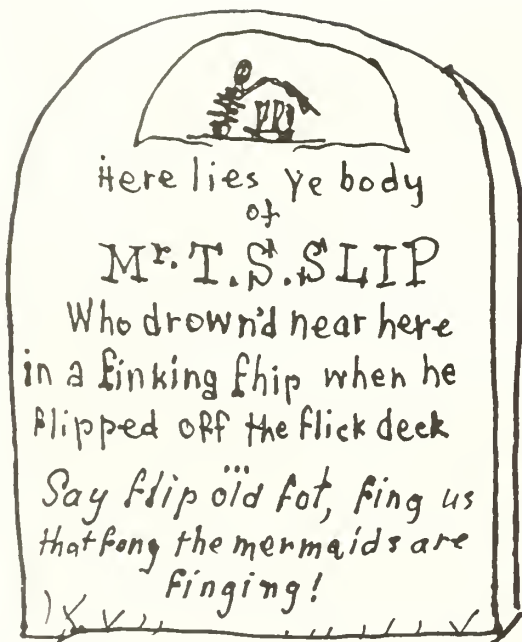 Here lies Ye body
of
Mr. T. S. SLIP
Who drown'd near here
in a finking fhip when he
flipped off the flick deck
Say flip old fot, fing us
that fong the mermaids are
finging!